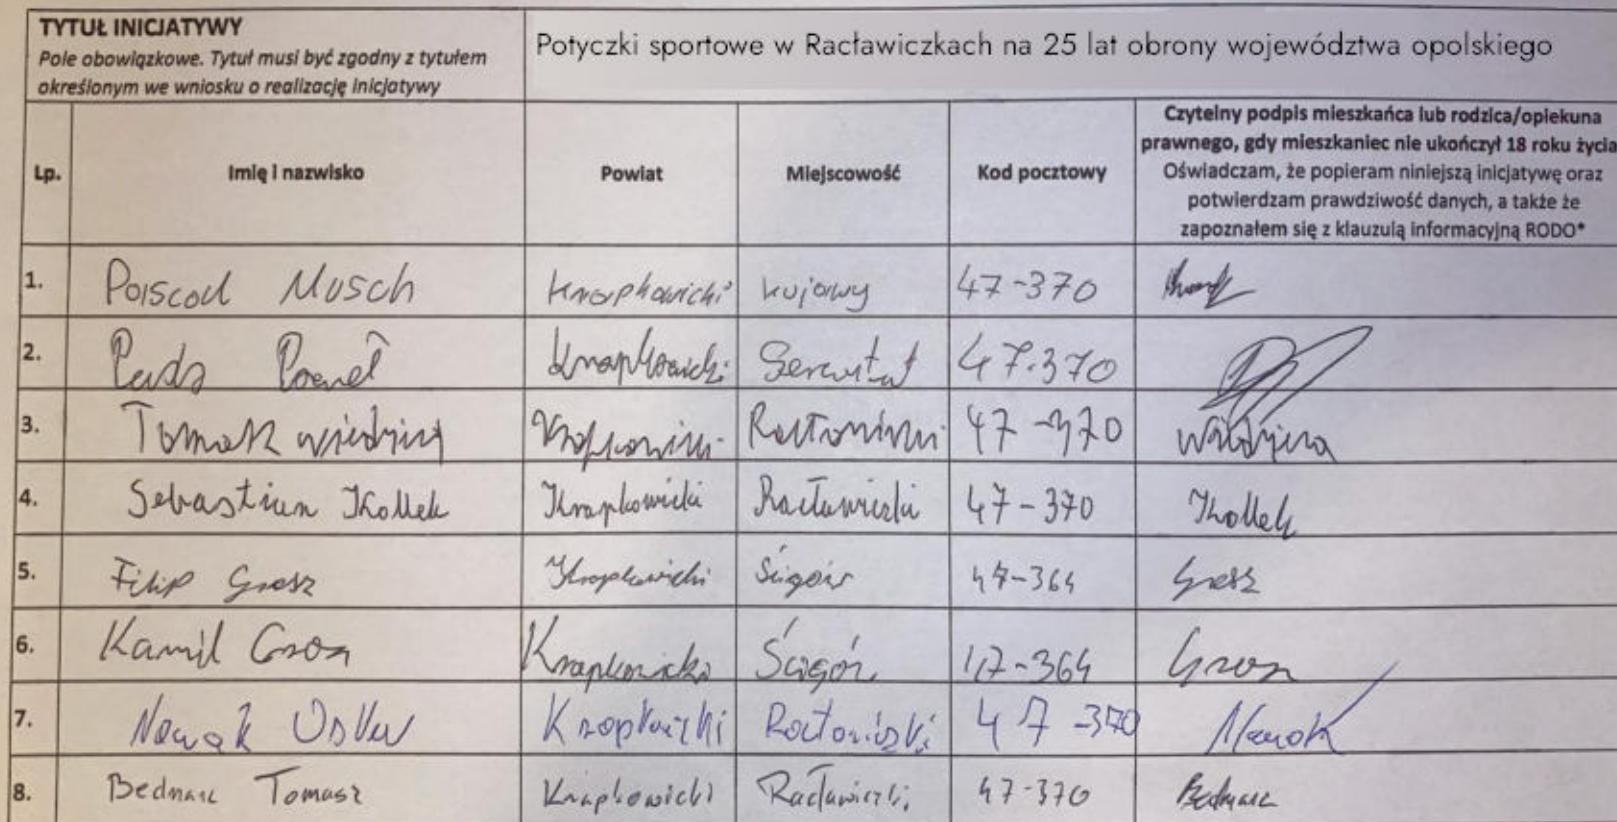 TYTUŁ INICJATYWY
Pole obowiązkowe. Tytuł musi być zgodny z tytułem
określonym we wniosku o realizację inicjatywy
Potyczki sportowe w Racławiczkach na 25 lat obrony województwa opolskiego
Lp.
Imię i nazwisko
Powiat
Miejscowość
Kod pocztowy
Czytelny podpis mieszkańca lub rodzica/opiekuna
prawnego, gdy mieszkaniec nie ukończył 18 roku życia
Oświadczam, że popieram niniejszą inicjatywę oraz
potwierdzam prawdziwość danych, a także że
zapoznałem się z klauzulą informacyjną RODO*
1. Musch Krapkowicki Kujawy 47-370
2. Paweł Krapkowicki Serwitut 47-370
3. Tomasz Krapkowicki 47-370
4. Sebastian Kollek Krapkowicki Racławiczki 47-370 Kollek
5. Filip Grosz Krapkowicki Ścigów 47-364 Grosz
6. Kamil Krapkowicki Ścigów 47-364
7. Nowak Krapkowicki Racławiczki 47-370 Nowak
8. Bednarz Tomasz Krapkowicki Racławiczki 47-370 Bednarz